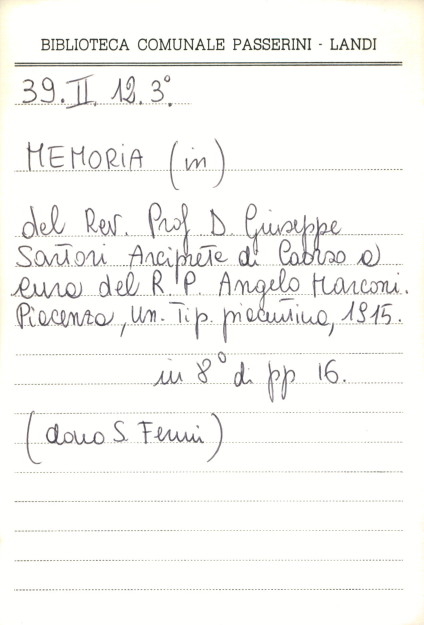 BIBLIOTECA COMUNALE PASSERINI - LANDI
39. II. 12. 3°.
MEMORIA (in)
del Rev. Prof D. Giuseppe
Sartori Arciprete di Caorso a
cura del R. P. Angelo Marconi.
Piacenza, Un. Tip. piacentina, 1915.
in 8° di pp 16.
(dono S. Fermi)